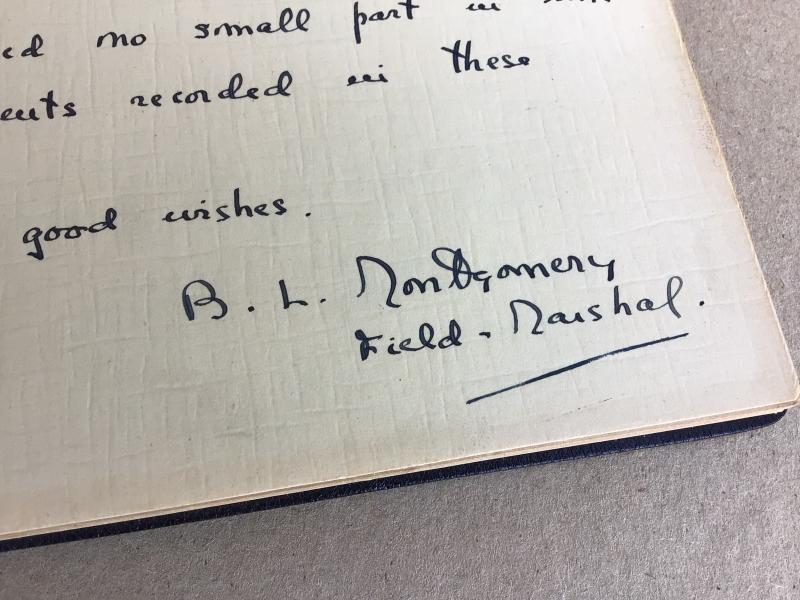 no small part in
these
recorded in
good wishes.
B. L. Montgomery
Field-Marshal.